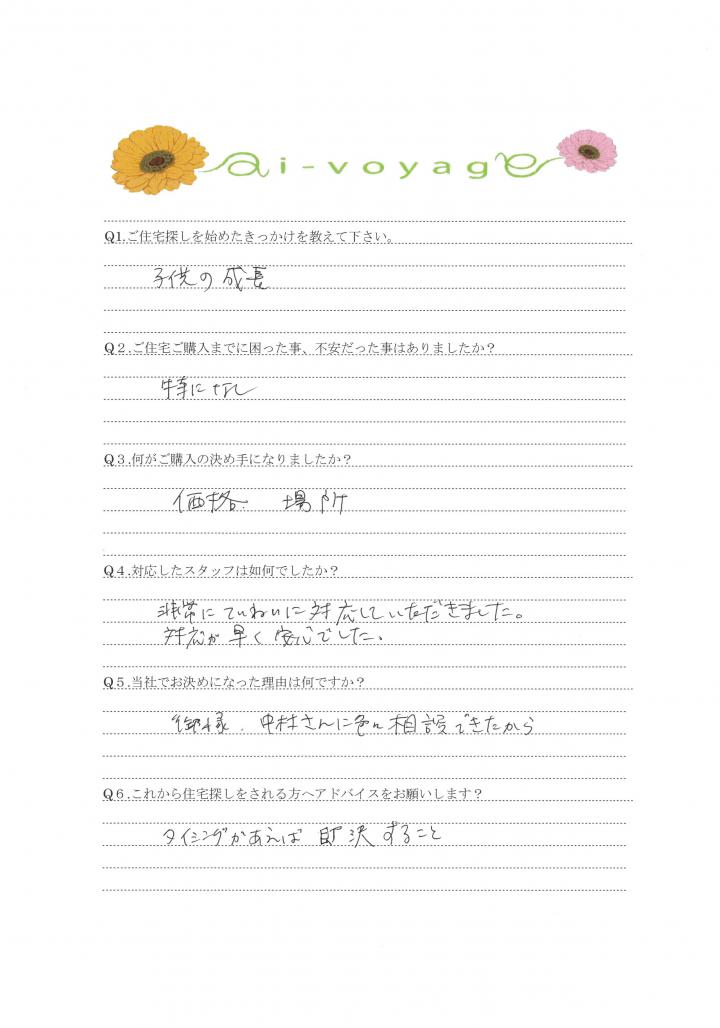 ai-voyage
Q1.ご住宅探しを始めたきっかけを教えて下さい。
子供の成長
Q２.ご住宅ご購入までに困った事、不安だった事はありましたか？
特になし
Q３.何がご購入の決め手になりましたか？
価格 場所
Q４.対応したスタッフは如何でしたか？
非常にていねいに対応していただきました。
対応が早く安心でした。
Q５.当社でお決めになった理由は何ですか？
中村さんに色々相談できたから
Q６.これから住宅探しをされる方へアドバイスをお願いします？
タイミングがあえば即決すること